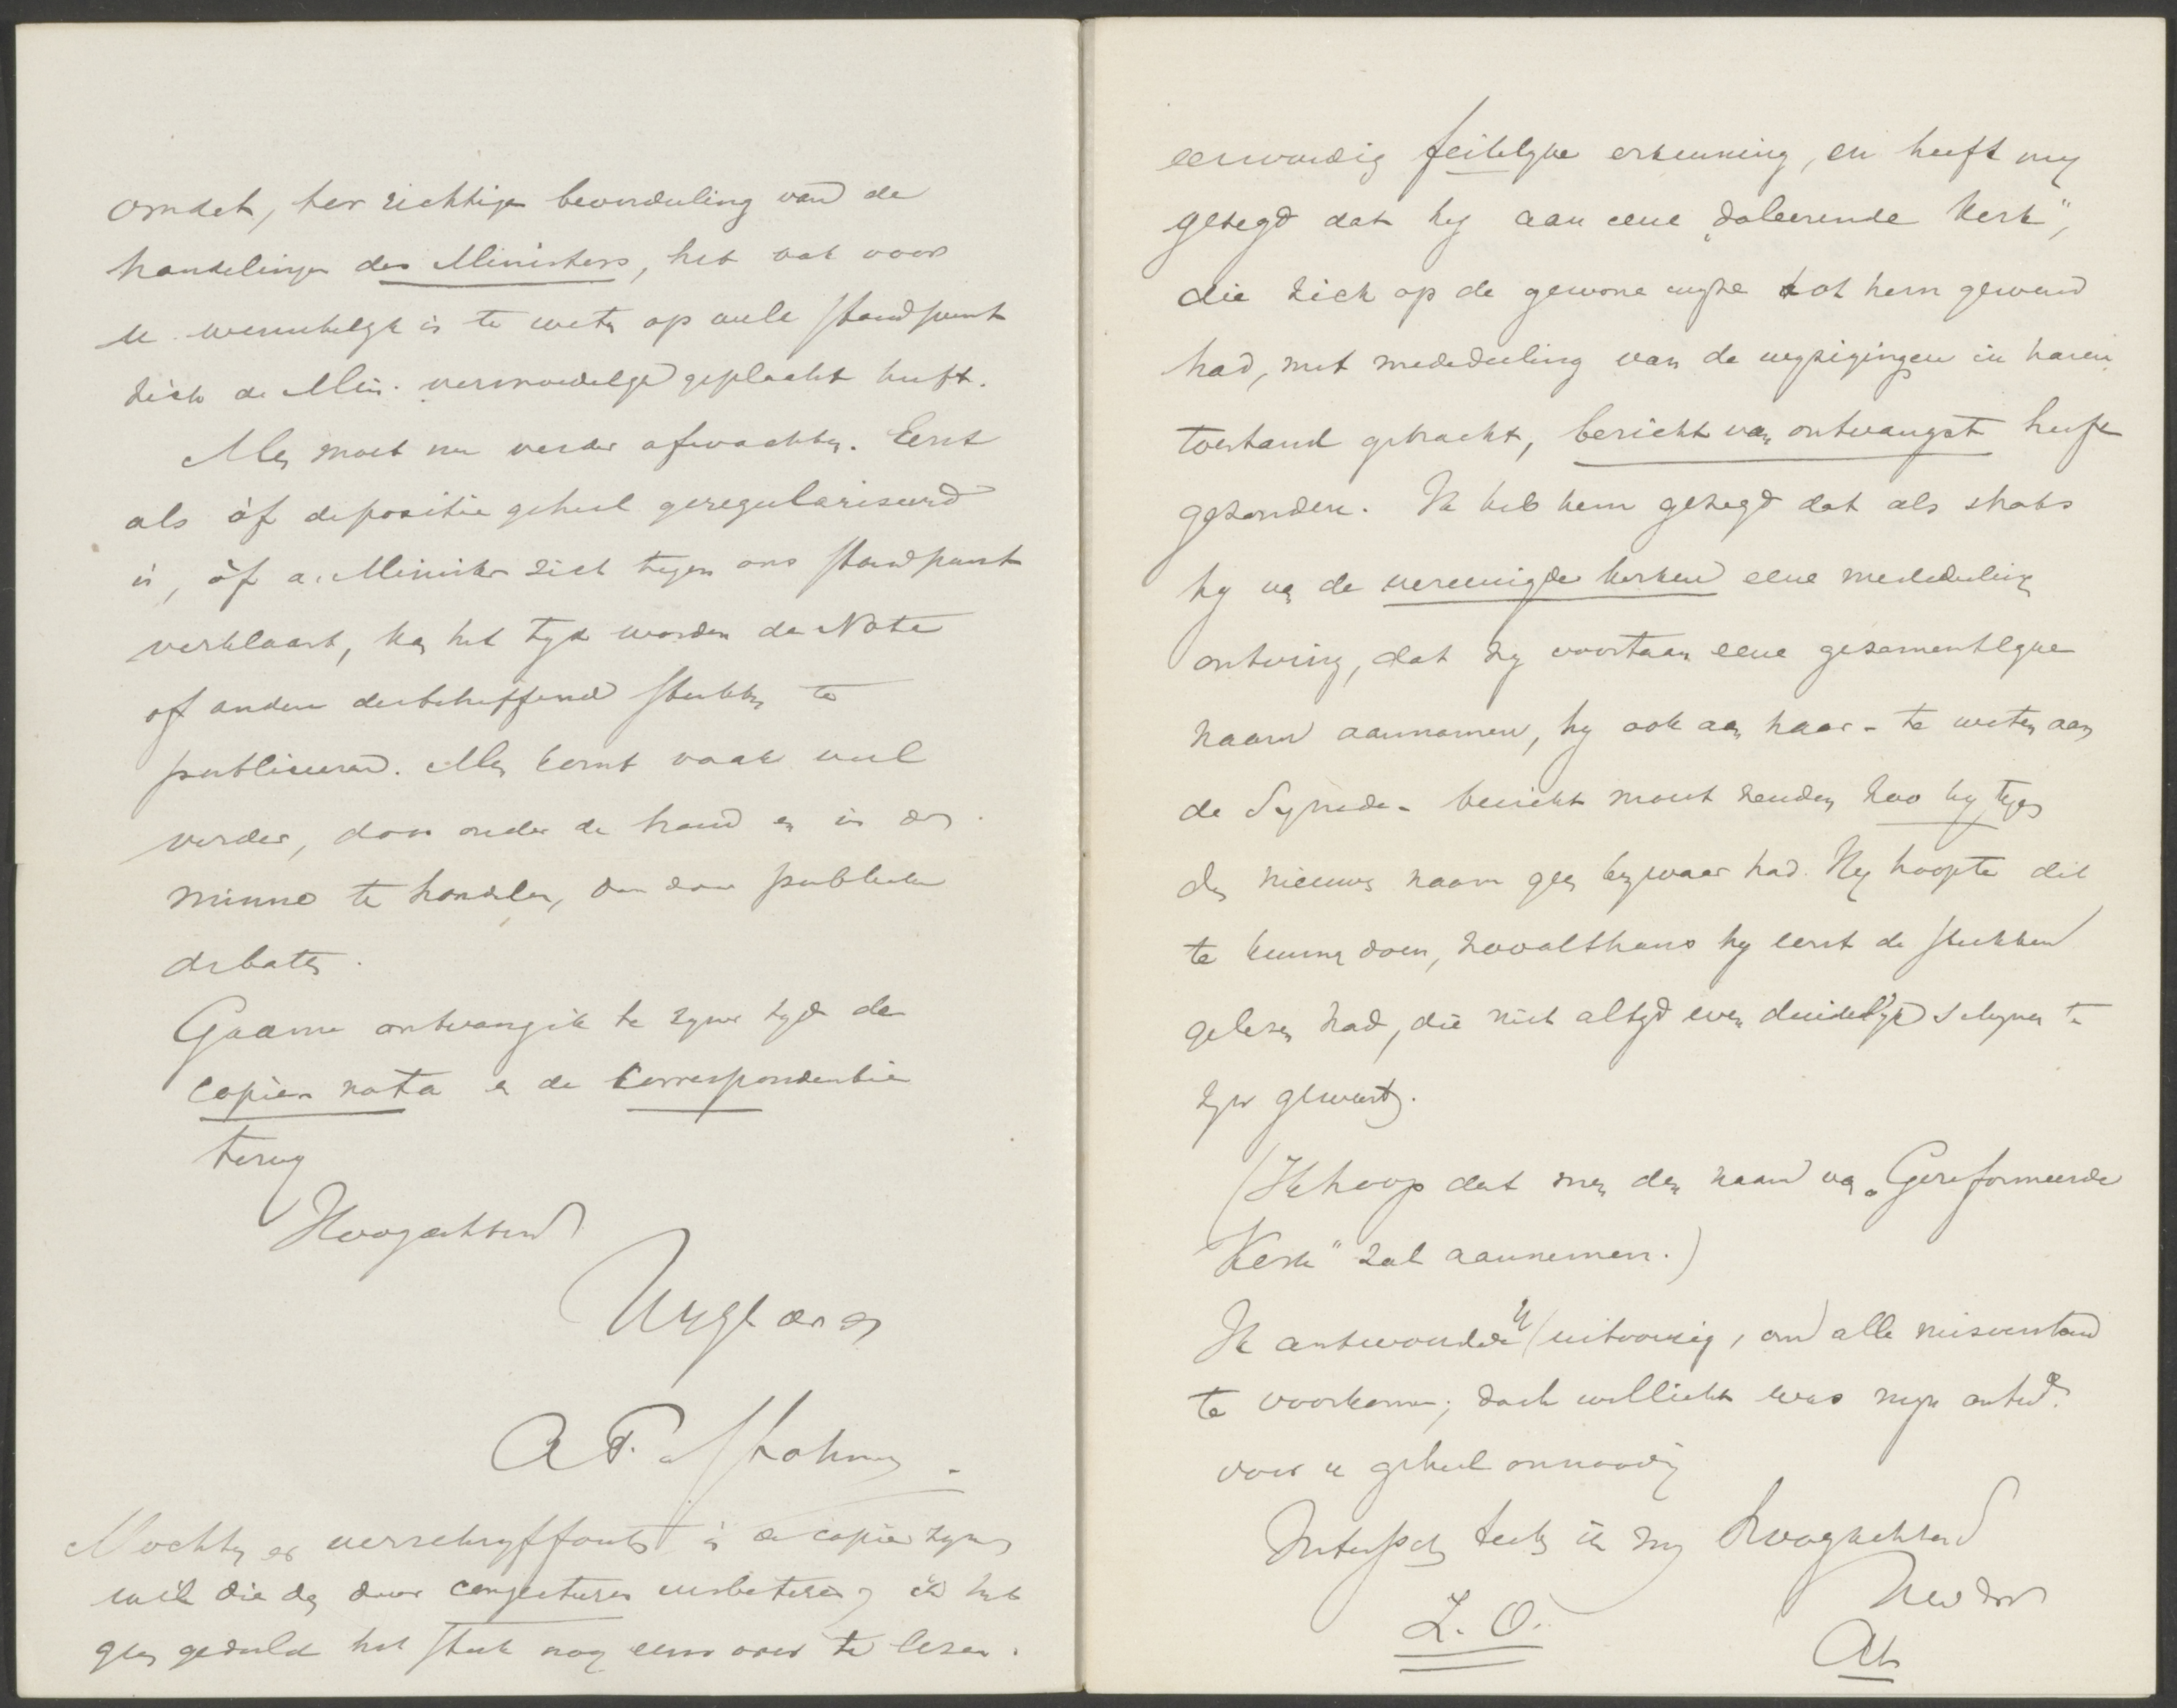 omdat, ter richtige beoordeeling van de
handelingen des Ministers, het ook voor
u wenschelyk is te weten op welk standpunt
zich de Min. vermoedelyk geplaatst heeft.
Men moet nu verder afwachten. Eerst
als òf depositie geheel geregulariseerd
is, òf de Minister zich tegen ons standpunt
verklaart, kan het tyd worden de Nota
of andere desbetreffende stukken te
publiceeren. Men komt vaak veel
verder, door onder de hand en in der
minne te handelen, dan door publieke
debatten.
Gaarne ontvang ik te zyner tyd de
copie-nota en de Correspondentie
terug
Hoogachtend
Uw
A F. de Savornin Lohman
Mochten er verschryffouten in de copie zyn,
wil die dan door conjecturen verbeteren; ik heb
geen geduld het stuk nog eens over te lezen.
eenvoudig feitelyke erkenning, en heeft my
gezegd dat hy aan eene „doleerende kerk",
die zich op de gewone wyze tot hem gewend
had, met mededeeling van de wyzigingen in haren
toestand gebracht, bericht van ontvangst heeft
gezonden. Ik heb hem gezegd dat als straks
hy van de vereenigde kerken eene mededeeling
ontving, dat zy voortaan eene gezamentlyke
naam aannamen, hy ook aan haar - te weten aan
de Synode - bericht moest zenden zoo hy tegen
den nieuwen naam geen bezwaar had. Hy hoopte dit
te kunnen doen, zoo althans hy eerst de stukken
gelezen had, die niet altyd even duidelyk schynen te
zyn geweest.
(Ik hoop dat men den naam van „Gereformeerde
Kerk" zal aannemen.)
Ik antwoordde U uitvoerig, om alle misverstand
te voorkomen; doch wellicht was myn antwd.
voor u geheel onnoodig
Intusschen teeken ik my hoogachtend
Uw dr
Z. O.